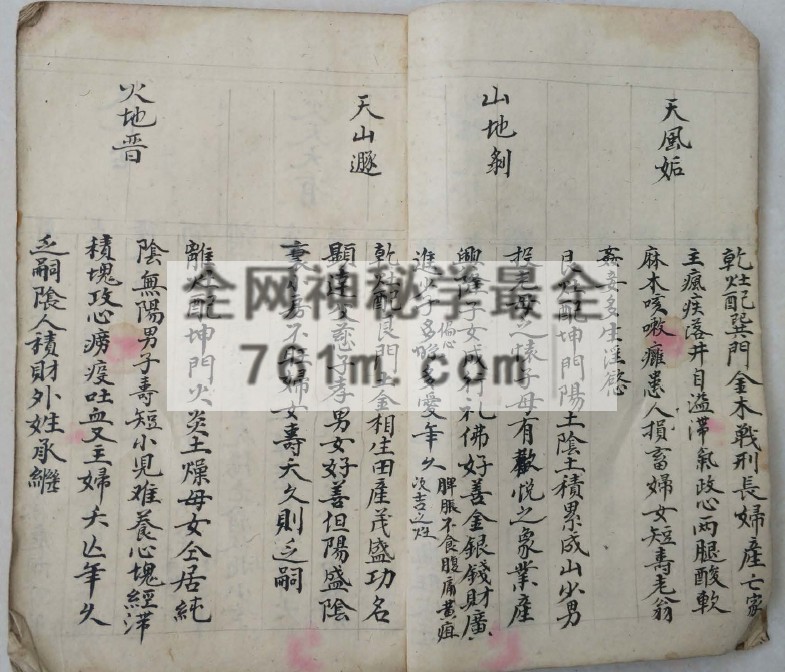 天風姤
乾灶配巽門金木戰刑長婦產亡家
主瘋疾落井自溢滯氣攻心兩腿酸軟
麻木咳嗽癱患人損畜婦女短壽老翁
姦妾多生淫慾
山地剝
艮灶配坤門陽土陰土積累成山少男
投老母之懷子母有歡悦之象業產
興隆子女成行礼佛好善金銀錢財廣
進少子多愛年久
偏心
脾脹不食腹痛黄疸
次吉之灶
天山遯
乾灶配艮門土金相生田產茂盛功名
顯達父慈子孝男女好善但陽盛陰
衰小房不旺婦女壽夭久則乏嗣
火地晋
離灶配坤門火炎土燥母女仝居純
陰無陽男子壽短小児难養心塊經滞
積塊攻心癆疫吐血又主婦夭亡年久
乏嗣陰人積財外姓承繼
全网神秘学最全
761m.com